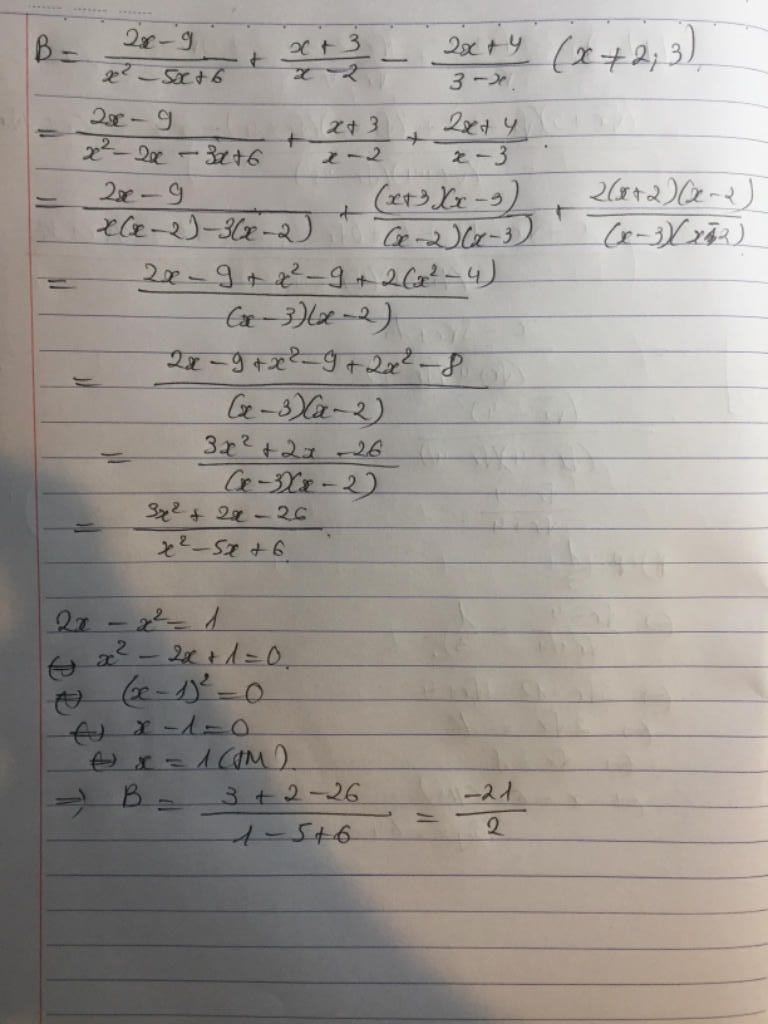 B = (2x - 9)/(x² - 5x + 6) + (x + 3)/(x - 2) - (2x + 4)/(3 - x) (x ≠ 2; 3).
= (2x - 9)/(x² - 2x - 3x + 6) + (x + 3)/(x - 2) + (2x + 4)/(x - 3).
= (2x - 9)/(x(x - 2) - 3(x - 2)) + ((x + 3)(x - 3))/((x - 2)(x - 3)) + (2(x + 2)(x - 2))/((x - 3)(x - 2))
= (2x - 9 + x² - 9 + 2(x² - 4))/((x - 3)(x - 2))
= (2x - 9 + x² - 9 + 2x² - 8)/((x - 3)(x - 2))
= (3x² + 2x - 26)/((x - 3)(x - 2))
= (3x² + 2x - 26)/(x² - 5x + 6).
2x - x² = 1
⇔ x² - 2x + 1 = 0.
⇔ (x - 1)² = 0
⇔ x - 1 = 0
⇔ x = 1 (tM).
⇒ B = (3 + 2 - 26)/(1 - 5 + 6) = -21/2